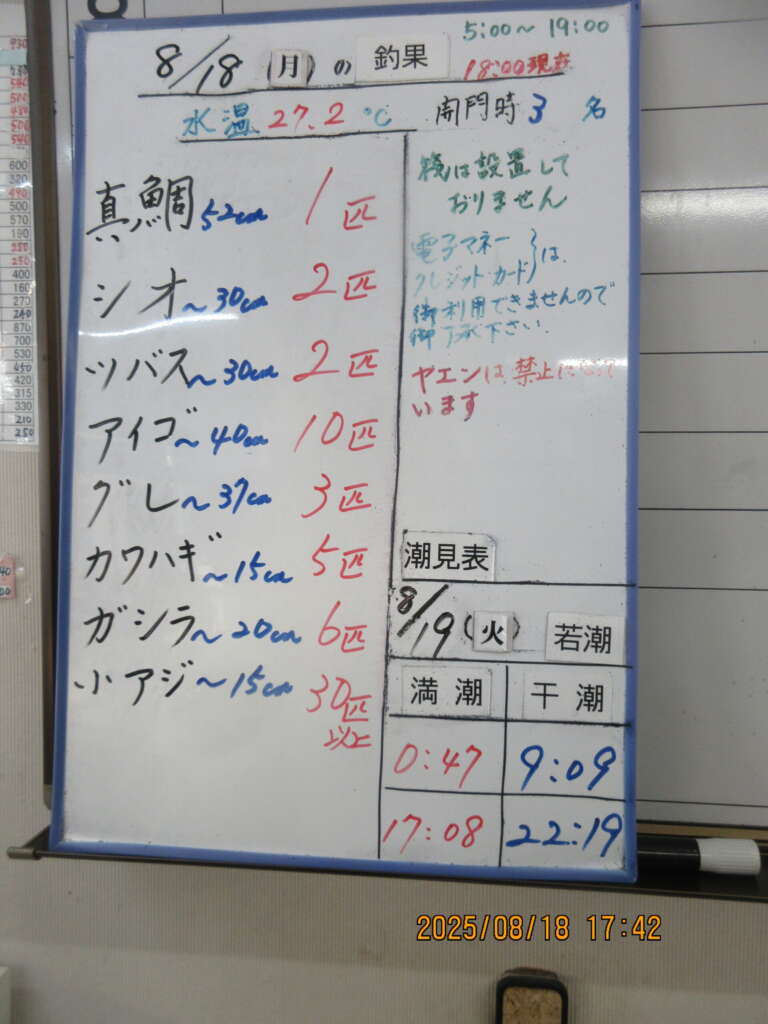 5:00～19:00
8/18(月)の釣果
18:00現在
水温27.2℃ 開門時3名
真鯛52cm 1匹
シオ～30cm 2匹
ツバス～30cm 2匹
アイゴ～40cm 10匹
グレ～37cm 3匹
カワハギ～15cm 5匹
ガシラ～20cm 6匹
小アジ～15cm 30匹
以上
は設置して
おりません
電子マネー
クレジットカード}は
御利用できませんので
御了承下さい.
ヤエンは禁止になって
います
潮見表
8/19(火) 若潮
満潮 干潮
0:47 9:09
17:08 22:19
600
320
490
500
570
190
250
250
400
160
270
240
870
700
530
450
420
315
330
210
250
2025/08/18 17:42